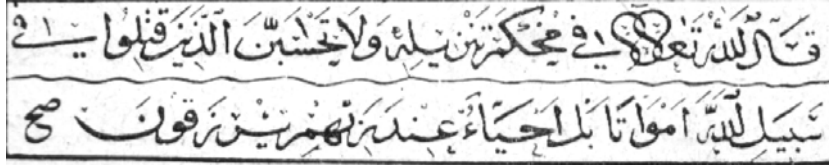 قَالَ اللهُ تَعَالَى فِي مُحْكَمِ تَنْزِيلِهِ وَلَا تَحْسَبَنَّ الَّذِينَ قُتِلُوا فِي
سَبِيلِ اللهِ أَمْوَاتًا بَلْ أَحْيَاءٌ عِنْدَ رَبِّهِمْ يُرْزَقُونَ صح